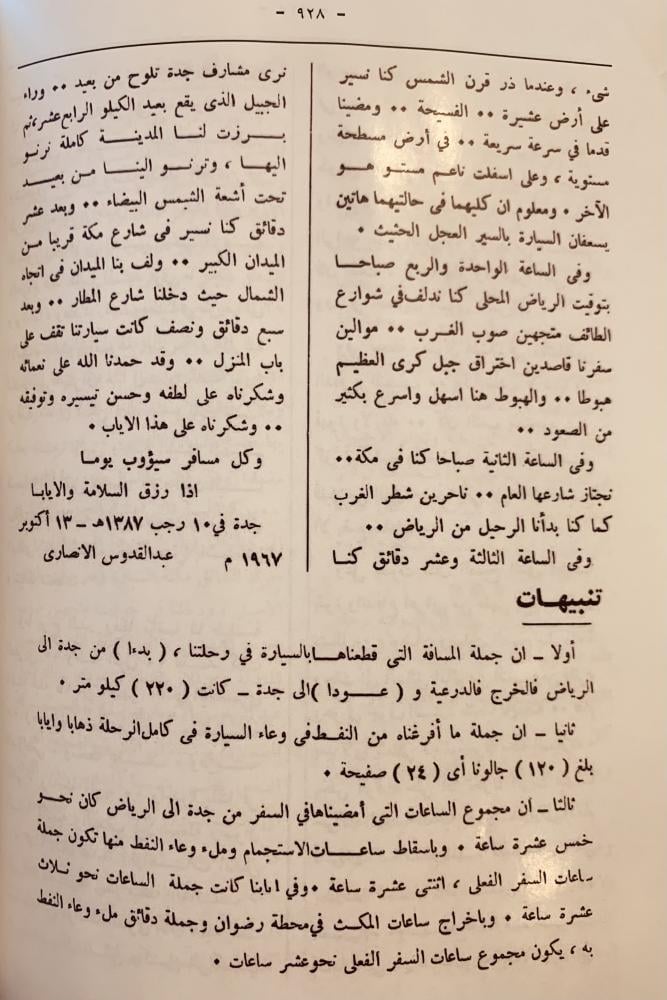 - ٩٢٨ -
شىء ، وعندما ذر قرن الشمس كنا نسير
على أرض عشيرة ٠٠ الفسيحة ٠٠ ومضينا
قدما في سرعة سريعة ٠٠ في أرض مسطحة
مستوية ، وعلى اسفلت ناعم مستو هو
الآخر ٠ ومعلوم ان كليهما فى حالتيهما هاتين
يسعفان السيارة بالسير العجل الحثيث ٠
وفى الساعة الواحدة والربع صباحا
بتوقيت الرياض المحلى كنا ندلف في شوارع
الطائف متجهين صوب الغرب ٠٠ موالين
سفرنا قاصدين اختراق جبل كرى العظيم
هبوطا ٠٠ والهبوط هنا اسهل واسرع بكثير
من الصعود ٠٠
وفى الساعة الثانية صباحا كنا فى مكة ٠٠
نجتاز شارعها العام ٠٠ ناحرين شطر الغرب
كما كنا بدأنا الرحيل من الرياض ٠٠
وفى الساعة الثالثة وعشر دقائق كنا
نرى مشارف جدة تلوح من بعيد ٠٠ وراء
الجبيل الذى يقع بعيد الكيلو الرابع عشر، ثم
برزت لنا المدينة كاملة نرنو
اليها ، وترنو الينا من بعيد
تحت أشعة الشمس البيضاء ٠٠ وبعد عشر
دقائق كنا نسير فى شارع مكة قريبا من
الميدان الكبير ٠٠ ولف بنا الميدان فى اتجاه
الشمال حيث دخلنا شارع المطار ٠٠ وبعد
سبع دقائق ونصف كانت سيارتنا تقف على
باب المنزل ٠٠ وقد حمدنا الله على نعمائه
وشكرناه على لطفه وحسن تيسيره وتوفيقه
٠٠ وشكرناه على هذا الاياب ٠
وكل مسافر سيؤوب يوما
اذا رزق السلامة والايابا
جدة في ١٠ رجب ١٣٨٧هـ - ١٣ أكتوبر
١٩٦٧ م عبدالقدوس الانصارى
تنبيهات
أولا - ان جملة المسافة التى قطعناها بالسيارة في رحلتنا ، ( بدءا ) من جدة الى
الرياض فالخرج فالدرعية و ( عودا ) الى جدة - كانت ( ٢٢٠ ) كيلو متر ٠
ثانيا - ان جملة ما أفرغناه من النفط فى وعاء السيارة فى كامل الرحلة ذهابا وايابا
بلغ ( ١٢٠ ) جالونا أى ( ٢٤ ) صفيحة ٠
ثالثا - ان مجموع الساعات التى أمضيناها في السفر من جدة الى الرياض كان نحو
خمس عشرة ساعة ٠ وباسقاط ساعات الاستجمام وملء وعاء النفط منها تكون جملة
ساعات السفر الفعلى ، اثنتى عشرة ساعة ٠ وفي ايابنا كانت جملة الساعات نحو ثلاث
عشرة ساعة ٠ وباخراج ساعات المكث في محطة رضوان وجملة دقائق ملء وعاء النفط
به ، يكون مجموع ساعات السفر الفعلى نحو عشر ساعات ٠